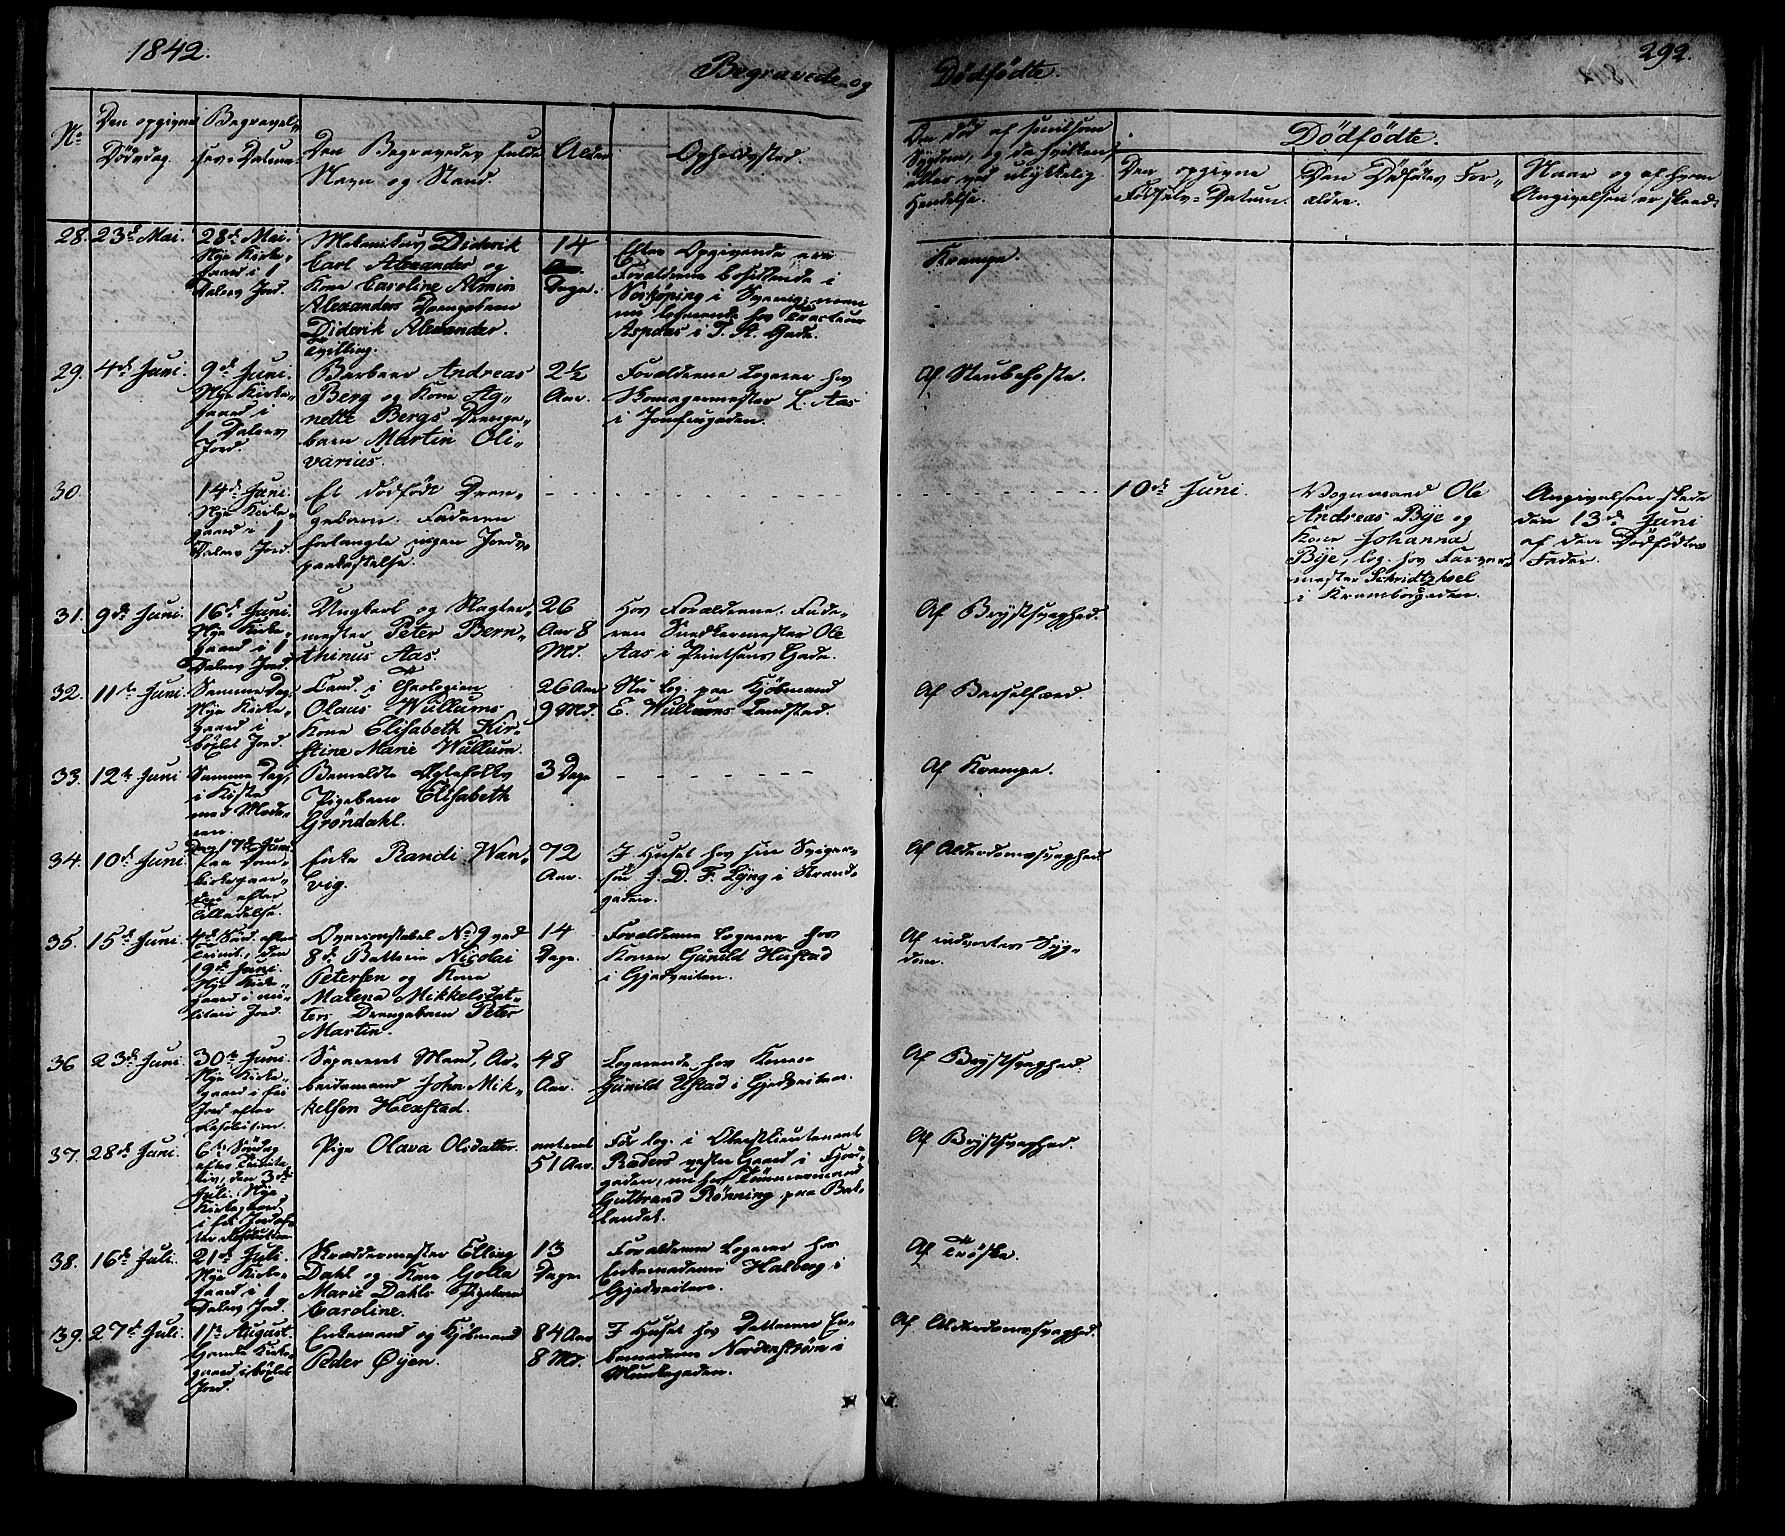 1842.
292.
Begravede og Dödfödte.
No
Den opgivne
Dödsdag.
Begravel-
ses-Datum.
Den Begravedes fulde
Navn og Stand.
Alder
Opholdssted.
Om död af smitsom
Sygdom, og da hvilken,
eller ved ulykkelig
Hendelse.
Dödfödte.
Den opgivne
Födsels-Datum.
Den Dödfödtes For-
ældre.
Naar og af hvem
Angivelsen er skeed.
28.
23de Mai.
28de Mai.
Nye Kirke-
gaard i 1
Dalers Jord.
Mekanikus Diderik
Carl Alexander og
Kone Caroline Almin
Alexanders Drengebarn
Diderik Alexander.
Tvilling.
14
Dage.
Efter Opgivende ere
Forældrene bosiddende i
Norkjöping i Sverrig, men
nu logerende hos Tracteur
Aspaas i T. A. Gade.
Krampe.
29.
4de Juni.
9de Juni.
Nye Kirke-
gaard i
1 Dalers
Jord.
Barbeer Andreas
Berg og Kone Ag-
nette Bergs Drenge-
barn Martin Oli-
varius.
2½
Aar.
Forældrene Logerer hos
Skomagermester L. Aas
i Jomfrugaden.
Af Strubehoste.
30.
14de Juni.
Nye Kirke-
gaard i 1
Dalers Jord.
Et dödfödt Dren-
gebarn. Faderen
forlangte ingen Jords-
paakastelse.
10de Juni.
Vognmand Ole
Andreas Bye og
Kone Johanna
Bye, log. hos Farver-
mester Schridtzhsel
i Krambodgaden.
Angivelsen skede
den 13de Juni
af den Dödfödtes
Fader.
31.
9de Juni.
16de Juni.
Nye Kirke-
gaard i 1
Dalers Jord.
Ungkarl og Slagter-
mester Peter Bern-
thinus Aas.
26
Aar 8
Md.
Hos Forældrene. Fade-
ren Snedkermester Ole
Aas i Printsens Gade.
Af Brystsvaghed.
32.
11te Juni.
Samme Dag.
Nye Kirke-
gaard i
kjöbt Jord.
Cand. i Theologien
Olaus Wullums
Kone Elisabeth Kir-
stine Marie Wullum.
26 Aar
9 Md.
Nu log. paa Kjöbmand
E. Wullums Landsted.
Af Barselfærd.
33.
12te Juni
Samme Dag,
i Kiste
med Mode-
ren.
Bemeldte Ægtefolks
Pigebarn Elisabeth
Gröndahl.
3 Dage
Af Krampe.
34.
10de Juni
Den 17de Juni.
Paa Dom-
kirkegaar-
den efter
Tilladelse.
Enke Randi Wan-
vig.
72
Aar.
I Huset hos sin Sviger-
sön J. D. F. Lyng i Strand-
gaden.
Af Alderdomssvaghed.
35.
15de Juni.
4de Sönd. efter
Trinit., den
19de Juni.
Nye Kirke-
gaard i mi-
litair Jord.
Overconstabel No 9 ved
8de Batterie Nicolai
Petersen og Kone
Malena Mikkelsdat-
ters Drengebarn Peter
Martin.
14
Dage.
Forældrene Logerer hos
Konen Gunild Hustad
i Gjedveiten.
Af indvortes Syg-
dom.
36
23de Juni
30te Juni.
Nye Kirke-
gaard i fri
Jord efter
Resolution.
Separeret Mand, Ar-
beidsmand John Mik-
kelsen Haxstad.
48
Aar.
Logerende hos Konen
Gunild Ustad i Gjedveiten.
Af Brystsvaghed.
37.
28de Juni.
6te Söndag
efter Trinita-
tis, den 3die
Juli. Nye
Kirkegaard
i fri Jord ef-
ter Resolution.
Pige Olava Olsdatter.
omtrent
51 Aar.
Før log. i Oberstlieutenant
Ræders vestre Gaard i Fjord-
gaden, nu hos Tömmermand
Gulbrand Rönning paa Bak-
landet.
Af Brystsvaghed.
38.
16de Juli.
21de Juli.
Nye Kirke-
gaard i 1
Dalers Jord.
Skreddermester Elling
Dahl og Kone Golla
Marie Dahls Pigebarn
Caroline.
13
Dage.
Forældrene Logerer hos
Enkemadame Halberg i
Gjedveiten.
Af Tröske.
39.
27de Juli.
1ste August.
Gamle Kirke-
gaard i kjöbt
Jord.
Enkemand og Kjöbmand
Peder Øyen.
84 Aar
8 Md.
I Huset hos Datteren En-
kemadame Nordenström i
Munkegaden.
Af Alderdomssvaghed.